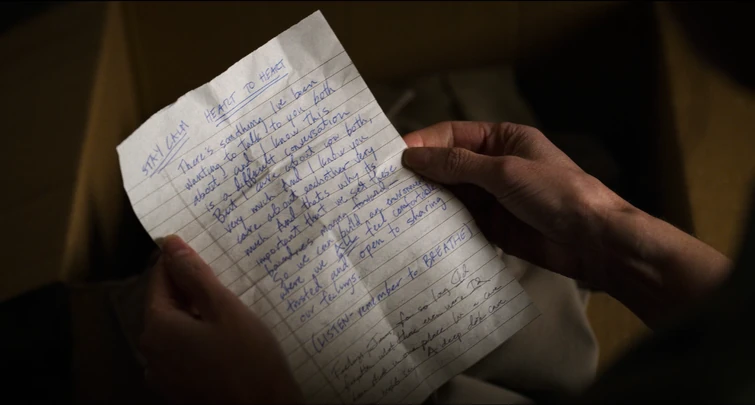 STAY CALM
HEART TO HEART
There's something I've been
wanting to talk to you both
about and I know this
is a difficult conversation
But I care about you both,
very much and I know you
care about eachother very
much And that's why it's
important that we set these
boundaries moving forward
So we can build an environment
where we both feel comfortable
trusted and open to sharing
our feelings.
(LISTEN - remember to BREATHE)
for so long
A deep dark cave